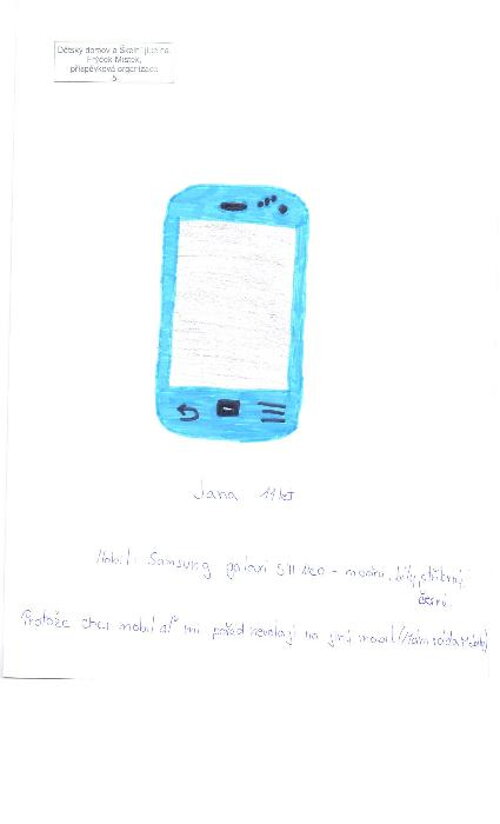 Dětský domov a Školní jídelna,
Frýdek-Místek,
příspěvková organizace
5
Jana 11 let
Mobil: Samsung galaxi S III neo - modrý, bílý, stříbrný,
černý.
Protože chci mobil ať mi pořád nevolají na jiný mobil (Mám ráda